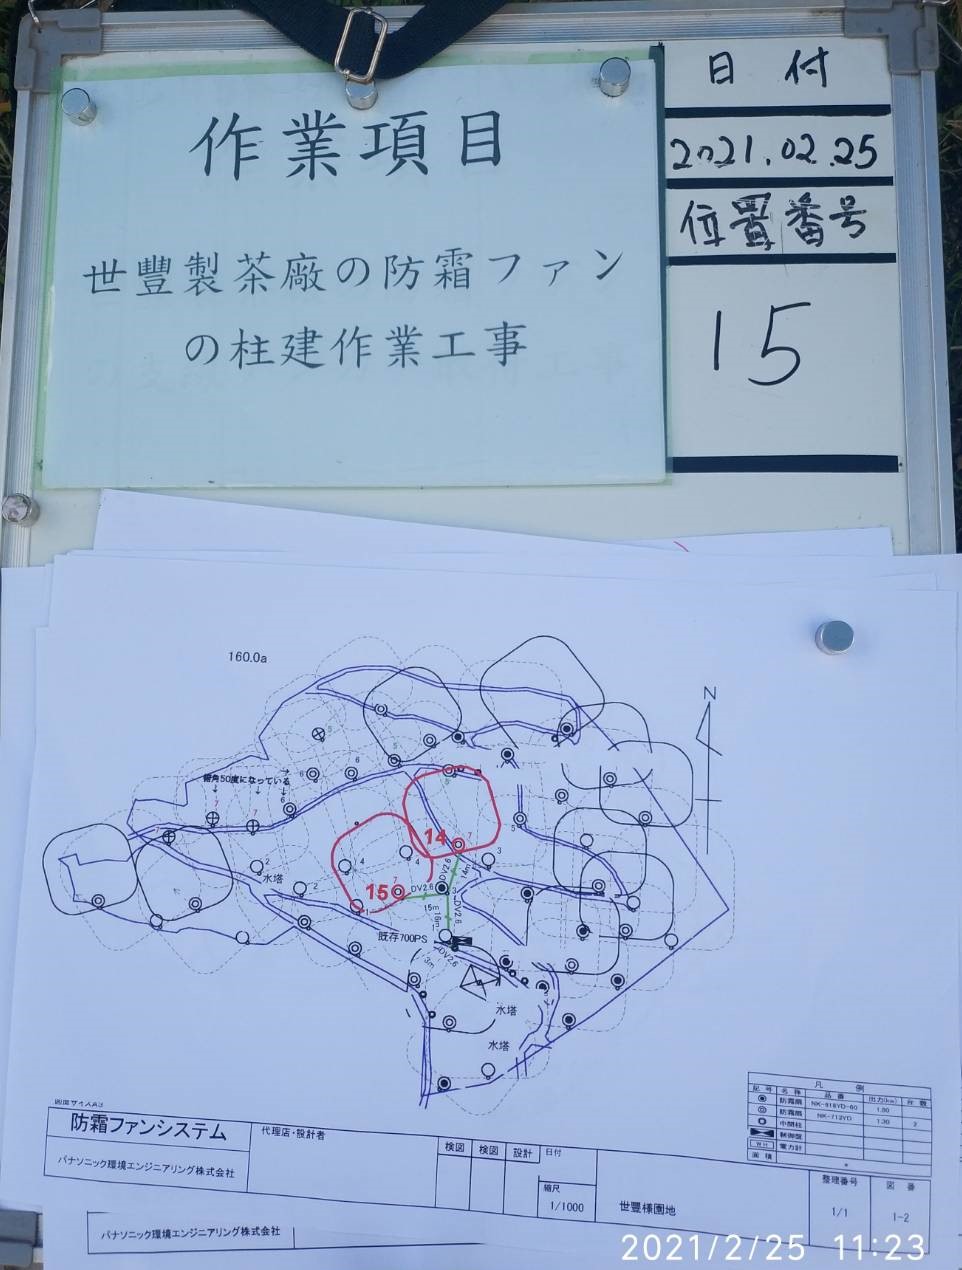 作業項目
世豐製茶廠の防霜ファン
の柱建作業工事
日付
2021.02.25
位置番号
15
160.0a
N
俯角50度になっている
14
15
水塔
DV2.6
DV2.6
DV2.6
14m
15m
16m
既存700PS
DV2.6
3m
水塔
水塔
図面サイズA3
防霜ファンシステム
パナソニック環境エンジニアリング株式会社
代理店・設計者
検図
検図
設計
日付
縮尺
1/1000
世豐様園地
整理番号
1/1
図番
1-2
凡例
記号
名称
品番
出力(kw)
台数
防霜扇
NK-712YD
1.30
2
中間柱
制御盤
WH
電力計
面積
パナソニック環境エンジニアリング株式会社
2021/2/25 11:23